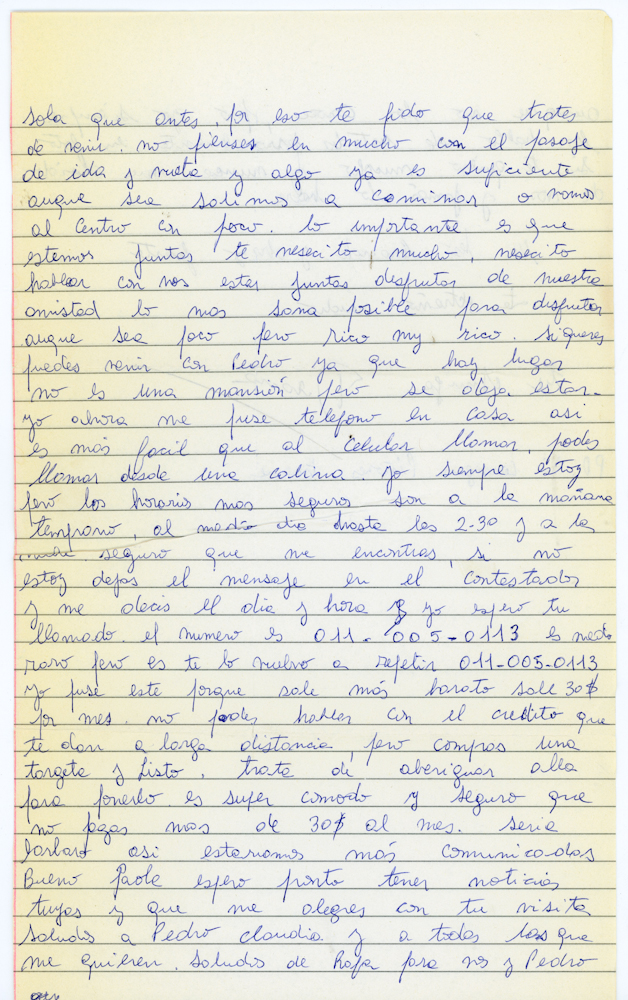 sola que antes. por eso te pido que trates
de venir. no pienses en mucho con el pasaje
de ida y vuelta y algo ya es suficiente
auque sea salimos a caminar o vamos
al centro con poco. lo importante es que
estemos juntas te nesecito mucho, nesecito
hablar con vos estar juntas disfrutar de nuestra
amistad lo mas sana posible para disfrutar
auque sea poco pero rico muy rico. si queres
puedes venir con Pedro ya que hay lugar
no es una mansión pero se deja estar.
yo ahora me puse telefono en casa asi
es más facil que al celular llamar, podes
llamar desde una cabina. yo siempre estoy
pero los horarios mas seguros son a la mañana
temprano, al medio dia hasta las 2-30 y a la
noche seguro que me encontras, si no
estoy dejas el mensaje en el contestador
y me decis el dia y hora y yo espero tu
llamado. el numero es 011-005-0113 es medio
raro pero es te lo vuelvo a repetir 011-005-0113
yo puse este porque sale más barato sale 30$
por mes. no podes hablar con el credito que
te dan a larga distancia, pero compras una
targeta y listo. trata de aberiguar alla
para ponerlo. es super comodo y seguro que
no pagas mas de 30$ al mes. seria
barbaro asi estariamos más comunicadas
Bueno Paola espero pronto tener noticias
tuyas y que me alegres con tu visita
saludos a Pedro claudia y a todos los que
me quieren. saludos de Rafa para vos y Pedro